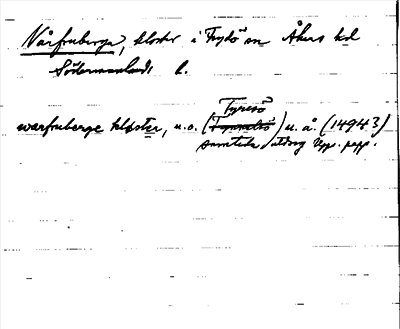 Vårfruberga, kloster i Fogdö sn Åkers hd
Södermanlands l.
Tyresö
warfruberge kloster, u.o. (Tyreslö) u.å. (1494?)
samtida utdrag Upps. papp.